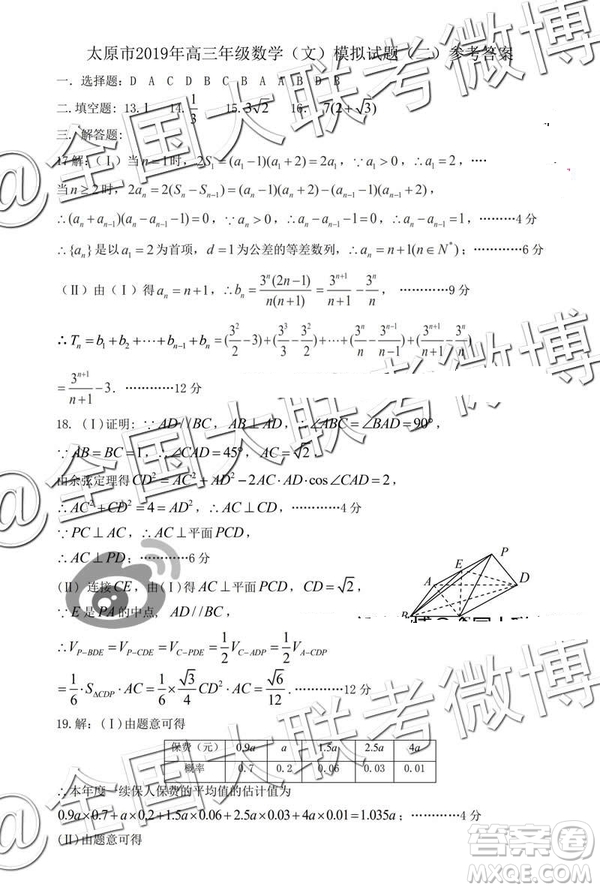 太原市2019年高三年级数学（文）模拟试题（二）参考答案
一．选择题：D A C B D B C A A B D B
二．填空题：13.1 14. 1/3 15. 3√2 16. 7(2+√3)
三．解答题：
17解：（Ⅰ）当n=1时，2S₁=(a₁-1)(a₁+2)=2a₁，∵a₁>0，∴a₁=2，…
当n≥2时，2aₙ=2(Sₙ-Sₙ₋₁)=(aₙ-1)(aₙ+2)-(aₙ₋₁-1)(aₙ₋₁+2)，
∴(aₙ+aₙ₋₁)(aₙ-aₙ₋₁-1)=0，∵aₙ>0，∴aₙ-aₙ₋₁=1，………4分
∴{aₙ}是以a₁=2为首项，d=1为公差的等差数列，∴aₙ=n+1(n∈N*)；…………6分
（Ⅱ）由（Ⅰ）得aₙ=n+1，∴bₙ=3ⁿ(2n-1)/n(n+1)=3ⁿ⁺¹/(n+1)-3ⁿ/n，…………9分
∴Tₙ=b₁+b₂+…+bₙ₋₁+bₙ=(3²/2-3)+(3³/3-3²/2)+…+(3ⁿ/n-3ⁿ⁻¹/(n-1))+(3ⁿ⁺¹/(n+1)-3ⁿ/n)
=3ⁿ⁺¹/(n+1)-3．…………12分
18.（Ⅰ)证明：∵AD//BC，AB⊥AD，∴∠ABC=∠BAD=90°，
∵AB=BC=1，∴∠CAD=45°，AC=√2，
由余弦定理得CD²=AC²+AD²-2AC·AD·cos∠CAD=2，
∴AC²+CD²=4=AD²，∴AC⊥CD，…………4分
∵PC⊥AC，∴AC⊥平面PCD，
∴AC⊥PD；…………6分
（Ⅱ）连接CE，由(Ⅰ)得AC⊥平面PCD，CD=√2，
∵E是PA的中点，AD//BC，
P
E
A
D
B
∴V_{P-BDE}=V_{P-CDE}=V_{C-PDE}=1/2 V_{C-ADP}=1/2 V_{A-CDP}
=1/6·S_{ΔCDP}·AC=1/6×√3/4 CD²·AC=√6/12．…………12分
19.解：（Ⅰ)由题意可得
保费（元） 0.9a a 1.5a 2.5a 4a
概率 0.7 0.2 0.06 0.03 0.01
∴本年度一续保人保费的平均值的估计值为
0.9a×0.7+a×0.2+1.5a×0.06+2.5a×0.03+4a×0.01=1.035a；…………4分
（Ⅱ）由题意可得
@全国大联考微博
@全国大联考微博
@全国大联考微博
答案圈